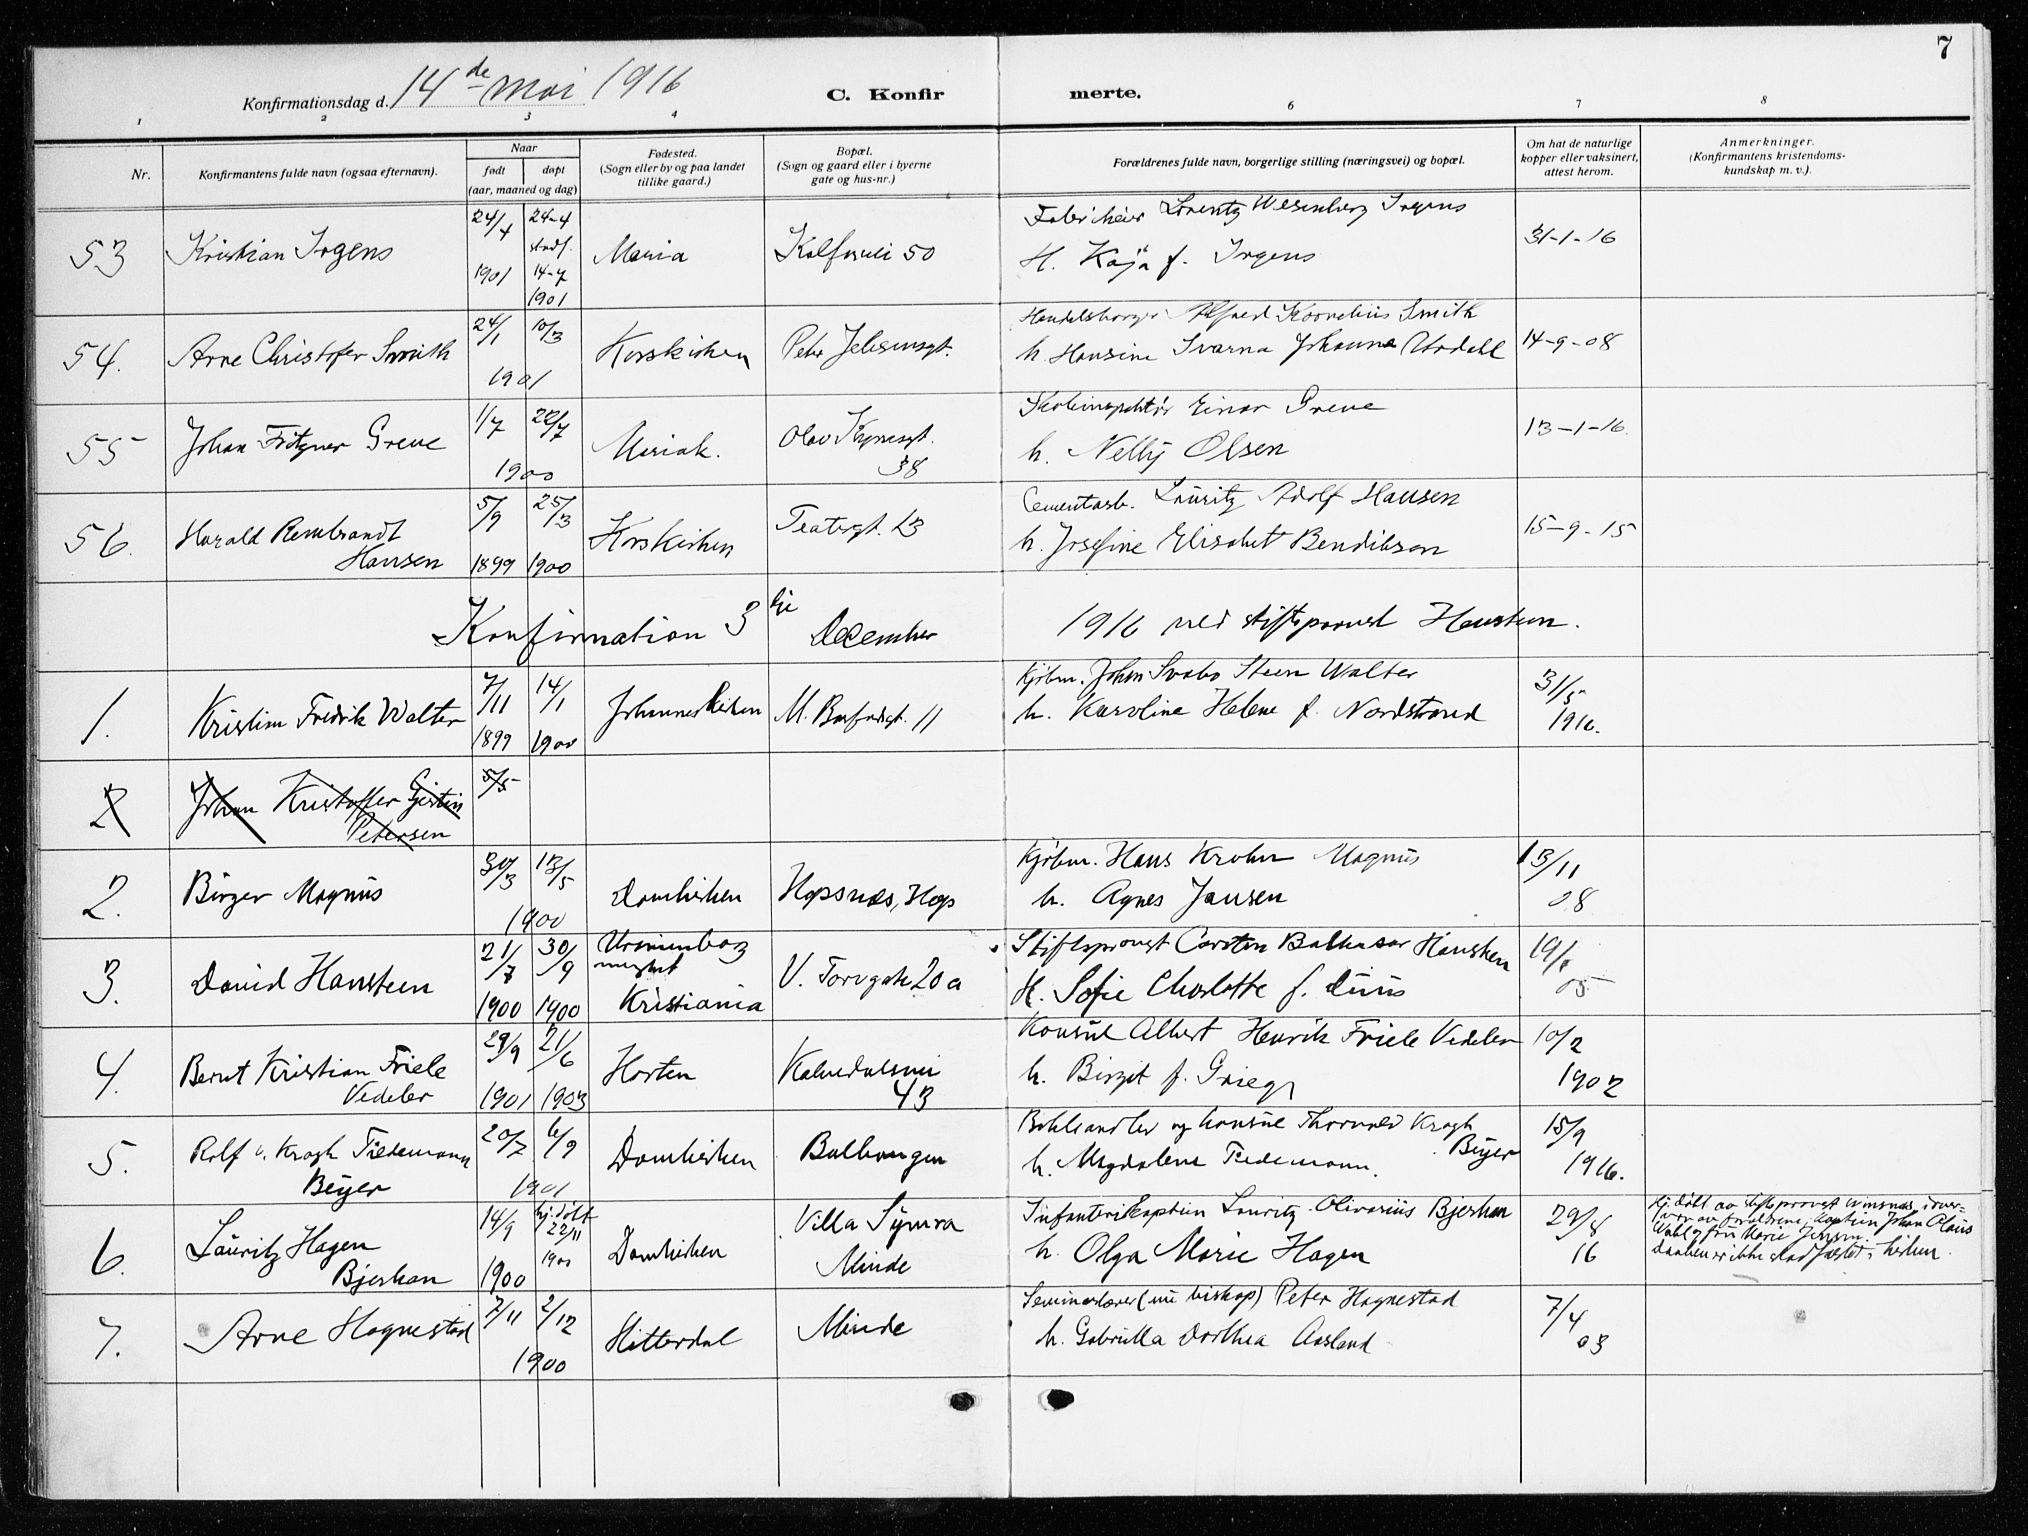 7
Konfirmationsdag d. 14de mai 1916
C. Konfirmerte.
1 2 3 4 6 7 8
Nr.
Konfirmantens fulde navn (ogsaa efternavn).
Naar
født døpt
(aar, maaned og dag)
Fødested.
(Sogn eller by og paa landet
tillike gaard.)
Bopæl.
(Sogn og gaard eller i byerne
gate og hus-nr.)
Forældrenes fulde navn, borgerlige stilling (næringsvei) og bopæl.
Om hat de naturlige
kopper eller vaksinert,
attest herom.
Anmerkninger.
(Konfirmantens kristendoms-
kundskap m. v.).
53 Kristian Irgens
24/4 1901
24-4 stadf. 14-7 1901
Maria
Kalfarvei 50
Lorentz Wesenberg Irgens
H. Kaja f. Irgens
31-1-16
54. Arne Christofer Smith
24/1 10/3
1901
Korskirken
Peter Jebsensgt.
Handelsborger Alfred Kornelius Smith
h. Hansine Svarna Johanne Urdahl
14-9-08
55 Johan Fritzner Greve
1/7 22/7
1900
Mariak.
Olav Kyrresgt.
38
Skoleinspektør Einar Greve
h. Nelly Olsen
13-1-16.
56. Harald Rembrandt
Hansen
5/9 25/3
1899 1900
Korskirken
Teatergt. 13
Cementarb. Lauritz Adolf Hansen
h. Josefine Elisabet Bendiksen
15-9-15
Konfirmation 3die December 1916 ved stiftsprovst Hansteen.
1. Kristian Fredrik Walter
7/11 14/1
1899 1900
Johanneskirken
11
Kjøbm. Johan Svabo Steen Walter
h. Karoline Helene f. Nordstrand
31/5
1916.
2 Johan Kristoffer Gjertin
Petersen
5/5
2. Birger Magnus
30/3 13/5
1900
Domkirken
Hopsnes, Hop
Kjøbm. Hans Krohn Magnus
h. Agnes Jansen
13/11
08
3. David Hansteen
21/7 30/9
1900 1900
Uranienborg
menighet
Kristiania
V. Torvgate 20 a
Stiftsprovst Carsten Balthazar Hansteen
H. Sofie Charlotte f. Duus
05
4. Bernt Kristian Friele
Vedeler
29/9 21/6
1901 1903
Horten
Kalvedalsvei
43
Konsul Albert Henrik Friele Vedeler
h. Birgit f. Grieg
10/2
1902
5. Rolf v. Kragh Tiedemann
Beyer
20/7 6/9
1901
Domkirken
Bokhandler og konsul Thorvald Kragh
Beyer
h. Magdalene Tiedemann.
15/9
1916.
6. Lauritz Hagen
Bjerkan
14/9 1900
hj. døbt
22/11
1900
Domkirken
Villa Symra
Minde
Infanterikaptein Lauritz Olivarius Bjerkan
h. Olga Marie Hagen
29/8
16
Hj. døbt av stiftsprovst i over-
vær av forældrene, Kaptein Johan Claus
og fru Marie Jensen.
Daaben er ikke stadfæstet i kirken.
7. Arne Hognestad
7/11 2/12
1900
Hitterdal
Minde
Seminarlærer (nu biskop) Peter Hognestad
h. Gabriella Dorthea Aasland
7/4
03